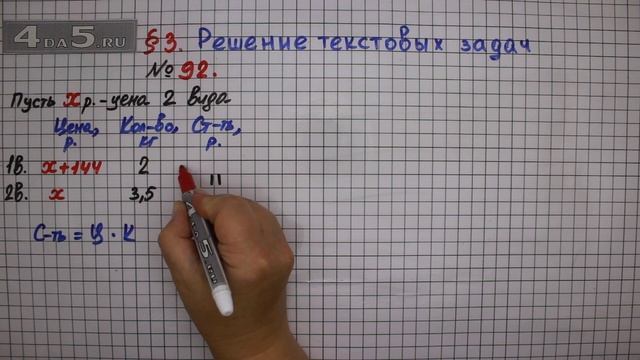 4DA5.RU
§3. Решение текстовых задач
№92.
Пусть x р. - цена 2 вида
Цена, Кол-во, Ст-ть,
р. кг р.
1в. x+144 2
2в. x 3,5 "
С-ть = Ц · К
4DA5.RU